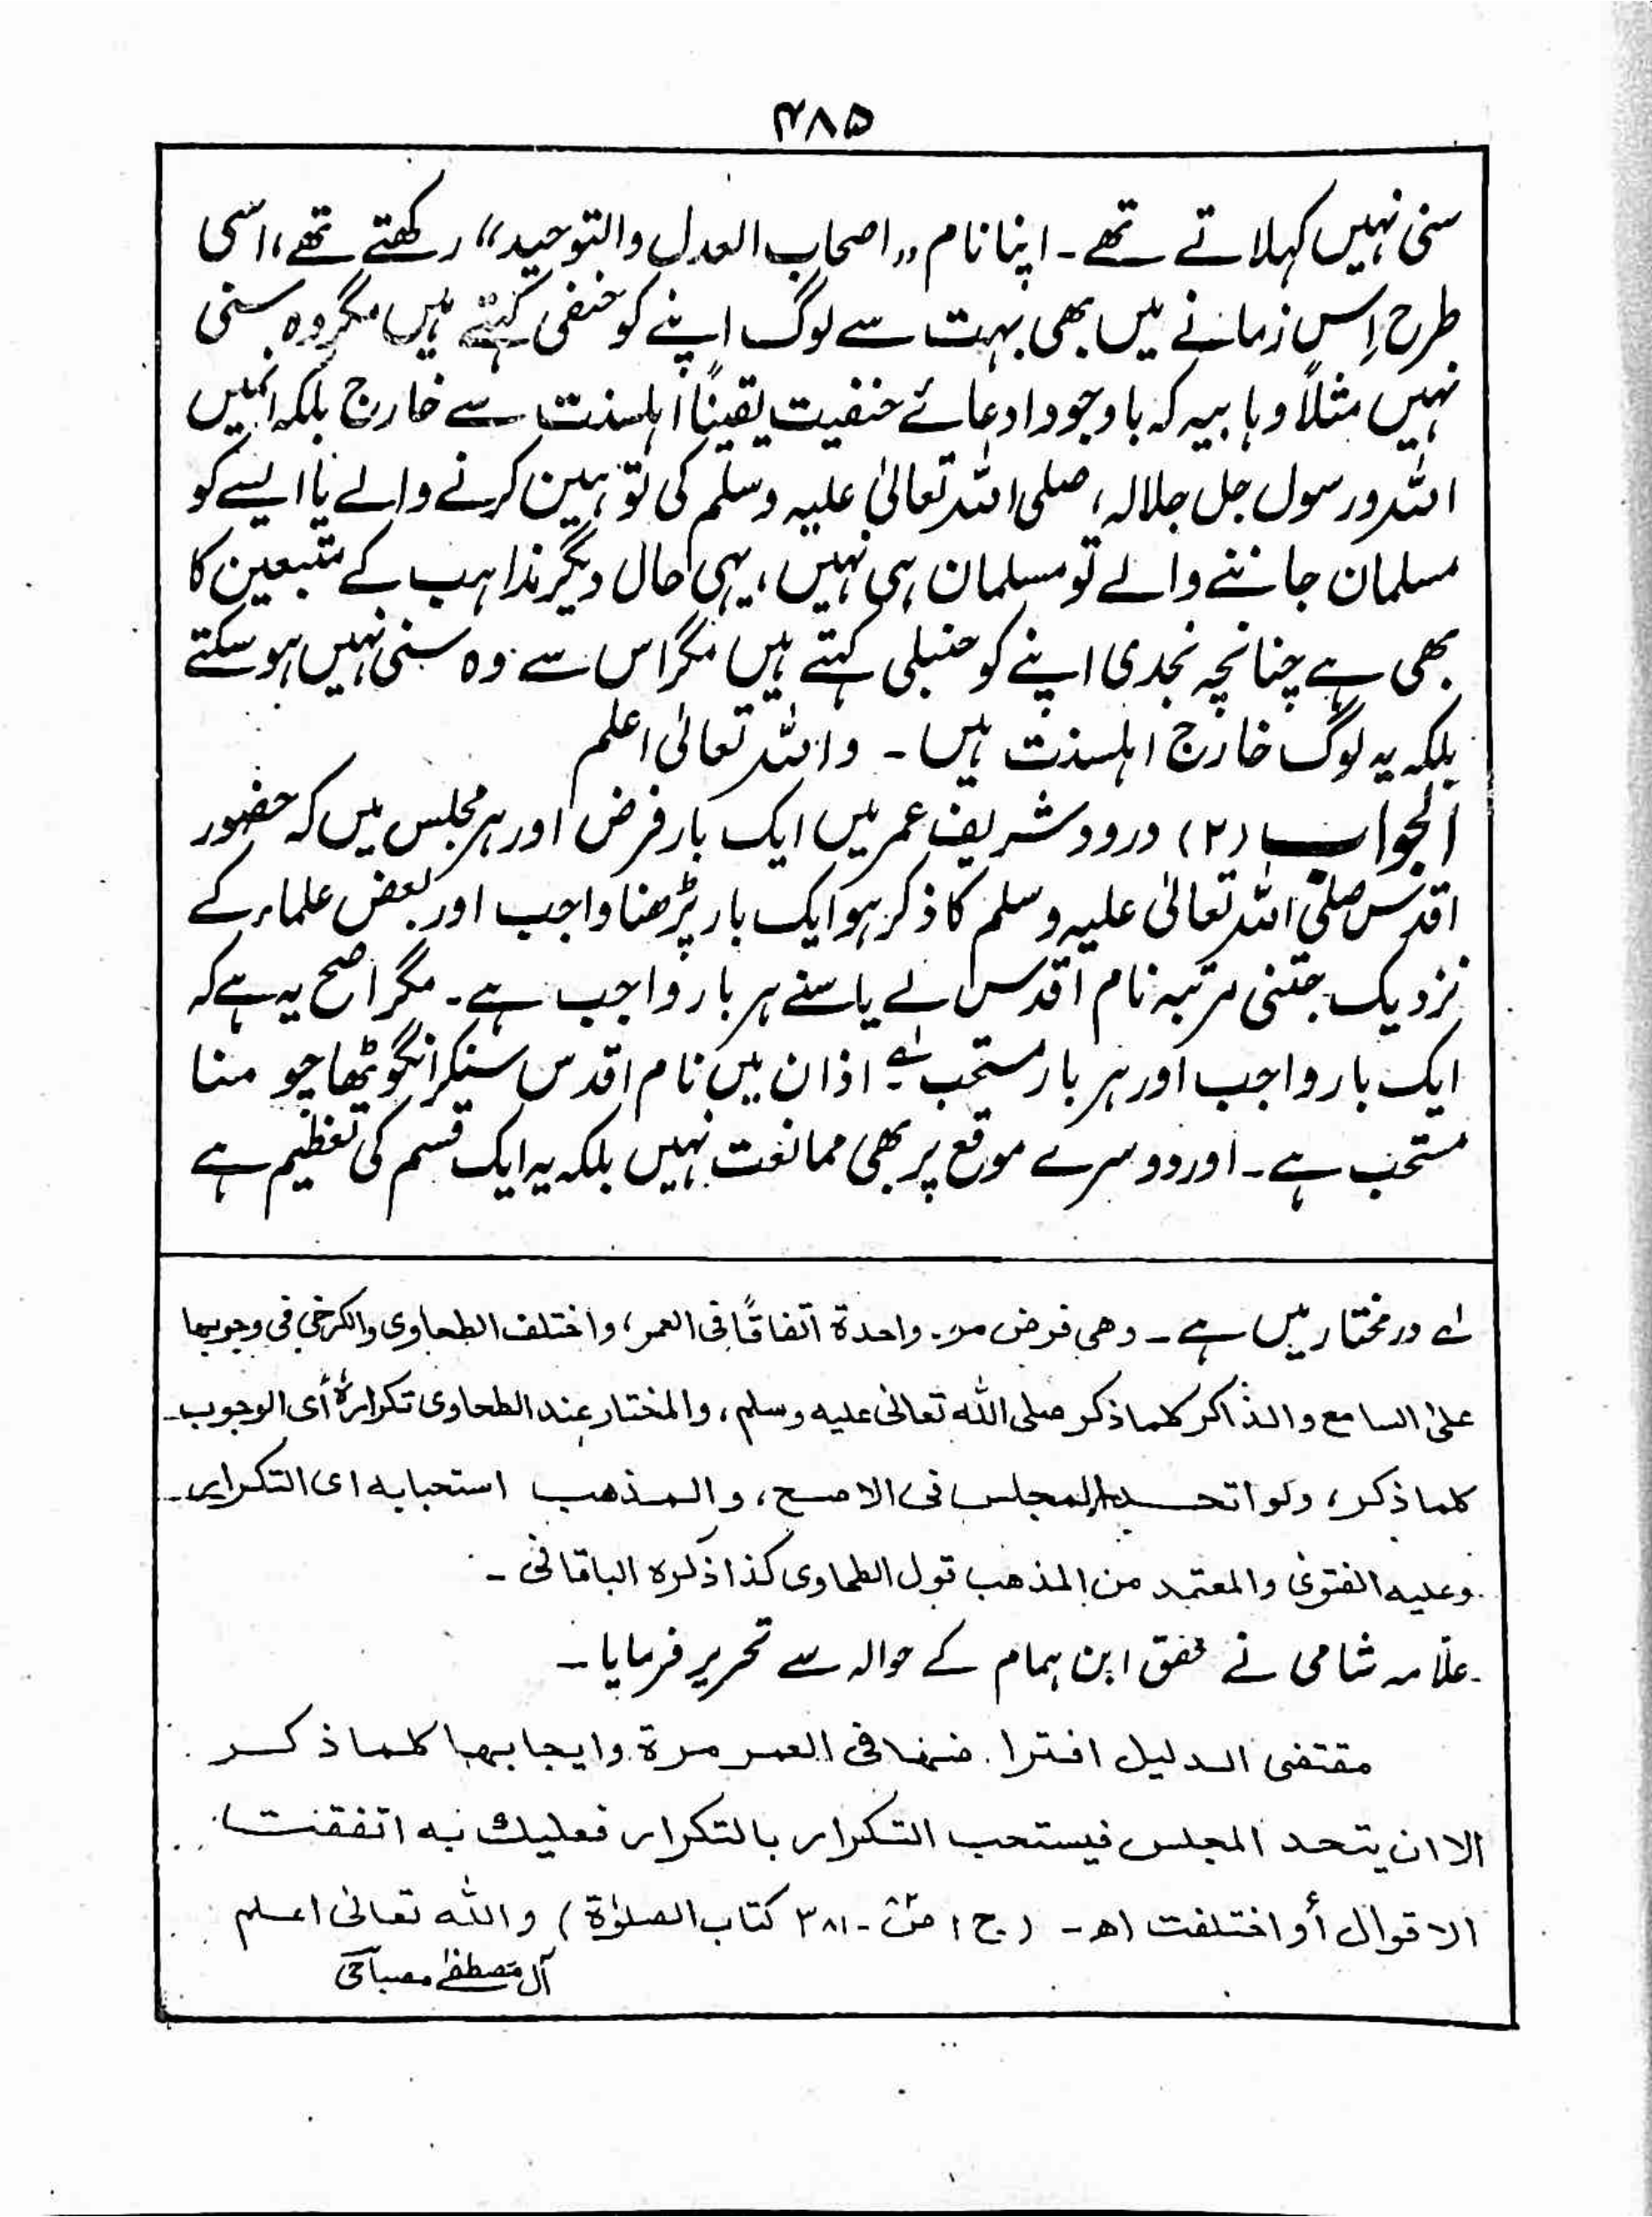 ۴۸۵
سنی نہیں کہلاتے تھے۔ اپنا نام „اصحاب العدل والتوحید“ رکھتے تھے، اسی
طرح اِس زمانے میں بھی بہت سے لوگ اپنے کو حنفی کہتے ہیں مگر وہ سنی
نہیں مثلاً وہابیہ کہ باوجود ادعائے حنفیت یقیناً اہلسنت سے خارج بلکہ انمیں
اللہ ورسول جل جلالہ، صلی اللہ تعالیٰ علیہ وسلم کی توہین کرنے والے یا ایسے کو
مسلمان جاننے والے تو مسلمان ہی نہیں، یہی حال دیگر مذاہب کے متبعین کا
بھی ہے چنانچہ نجدی اپنے کو حنبلی کہتے ہیں مگر اس سے وہ سنی نہیں ہوسکتے
بلکہ یہ لوگ خارج اہلسنت ہیں۔ واللہ تعالیٰ اعلم
الجواب (۲) درود شریف عمر میں ایک بار فرض اور ہر مجلس میں کہ حضور
اقدس صلی اللہ تعالیٰ علیہ وسلم کا ذکر ہو ایک بار پڑھنا واجب اور بعض علماء کے
نزدیک جتنی مرتبہ نام اقدس لے یا سنے ہر بار واجب ہے۔ مگر اصح یہ ہے کہ
ایک بار واجب اور ہر بار مستحب ہے۔ اذان میں نام اقدس سنکر انگوٹھا چومنا
مستحب ہے۔ اور دوسرے موقع پر بھی ممانعت نہیں بلکہ یہ ایک قسم کی تعظیم ہے
لے درمختار میں ہے۔ وھی فرض مرۃ واحدۃ اتفاقًا فی العمر، واختلف الطحاوی والکرخی فی وجوبھا
علیٰ السامع والذاکر کلما ذکر صلی اللہ تعالیٰ علیہ وسلم، والمختار عند الطحاوی تکرارہٗ أی الوجوب۔
کلما ذکر، ولو اتحد المجلس فی الاصح، والمذھب استحبابہ ای التکرار۔
وعلیہ الفتویٰ والمعتمد من المذھب قول الطحاوی کذا ذکرہ الباقانی۔
علّامہ شامی نے محقق ابن ہمام کے حوالہ سے تحریر فرمایا۔
مقتضی الدلیل افتراضھا فی العمر مرۃ وایجابھا کلما ذکر
الا ان یتحد المجلس فیستحب التکرار بالتکرار فعلیك بہ اتفقت
الاقوال أو اختلفت اھ۔ (ج۱ ص۔۳۸۱ کتاب الصلوٰۃ) واللہ تعالیٰ اعلم
آل مصطفےٰ مصباحی